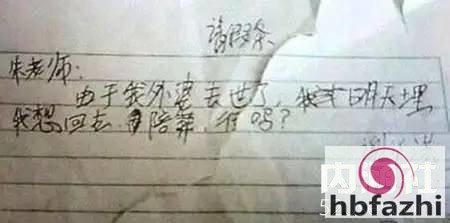 请假条
朱老师:
由于我外婆去世了,我明天埋
我想回去陪葬,行吗?
hbfazhi